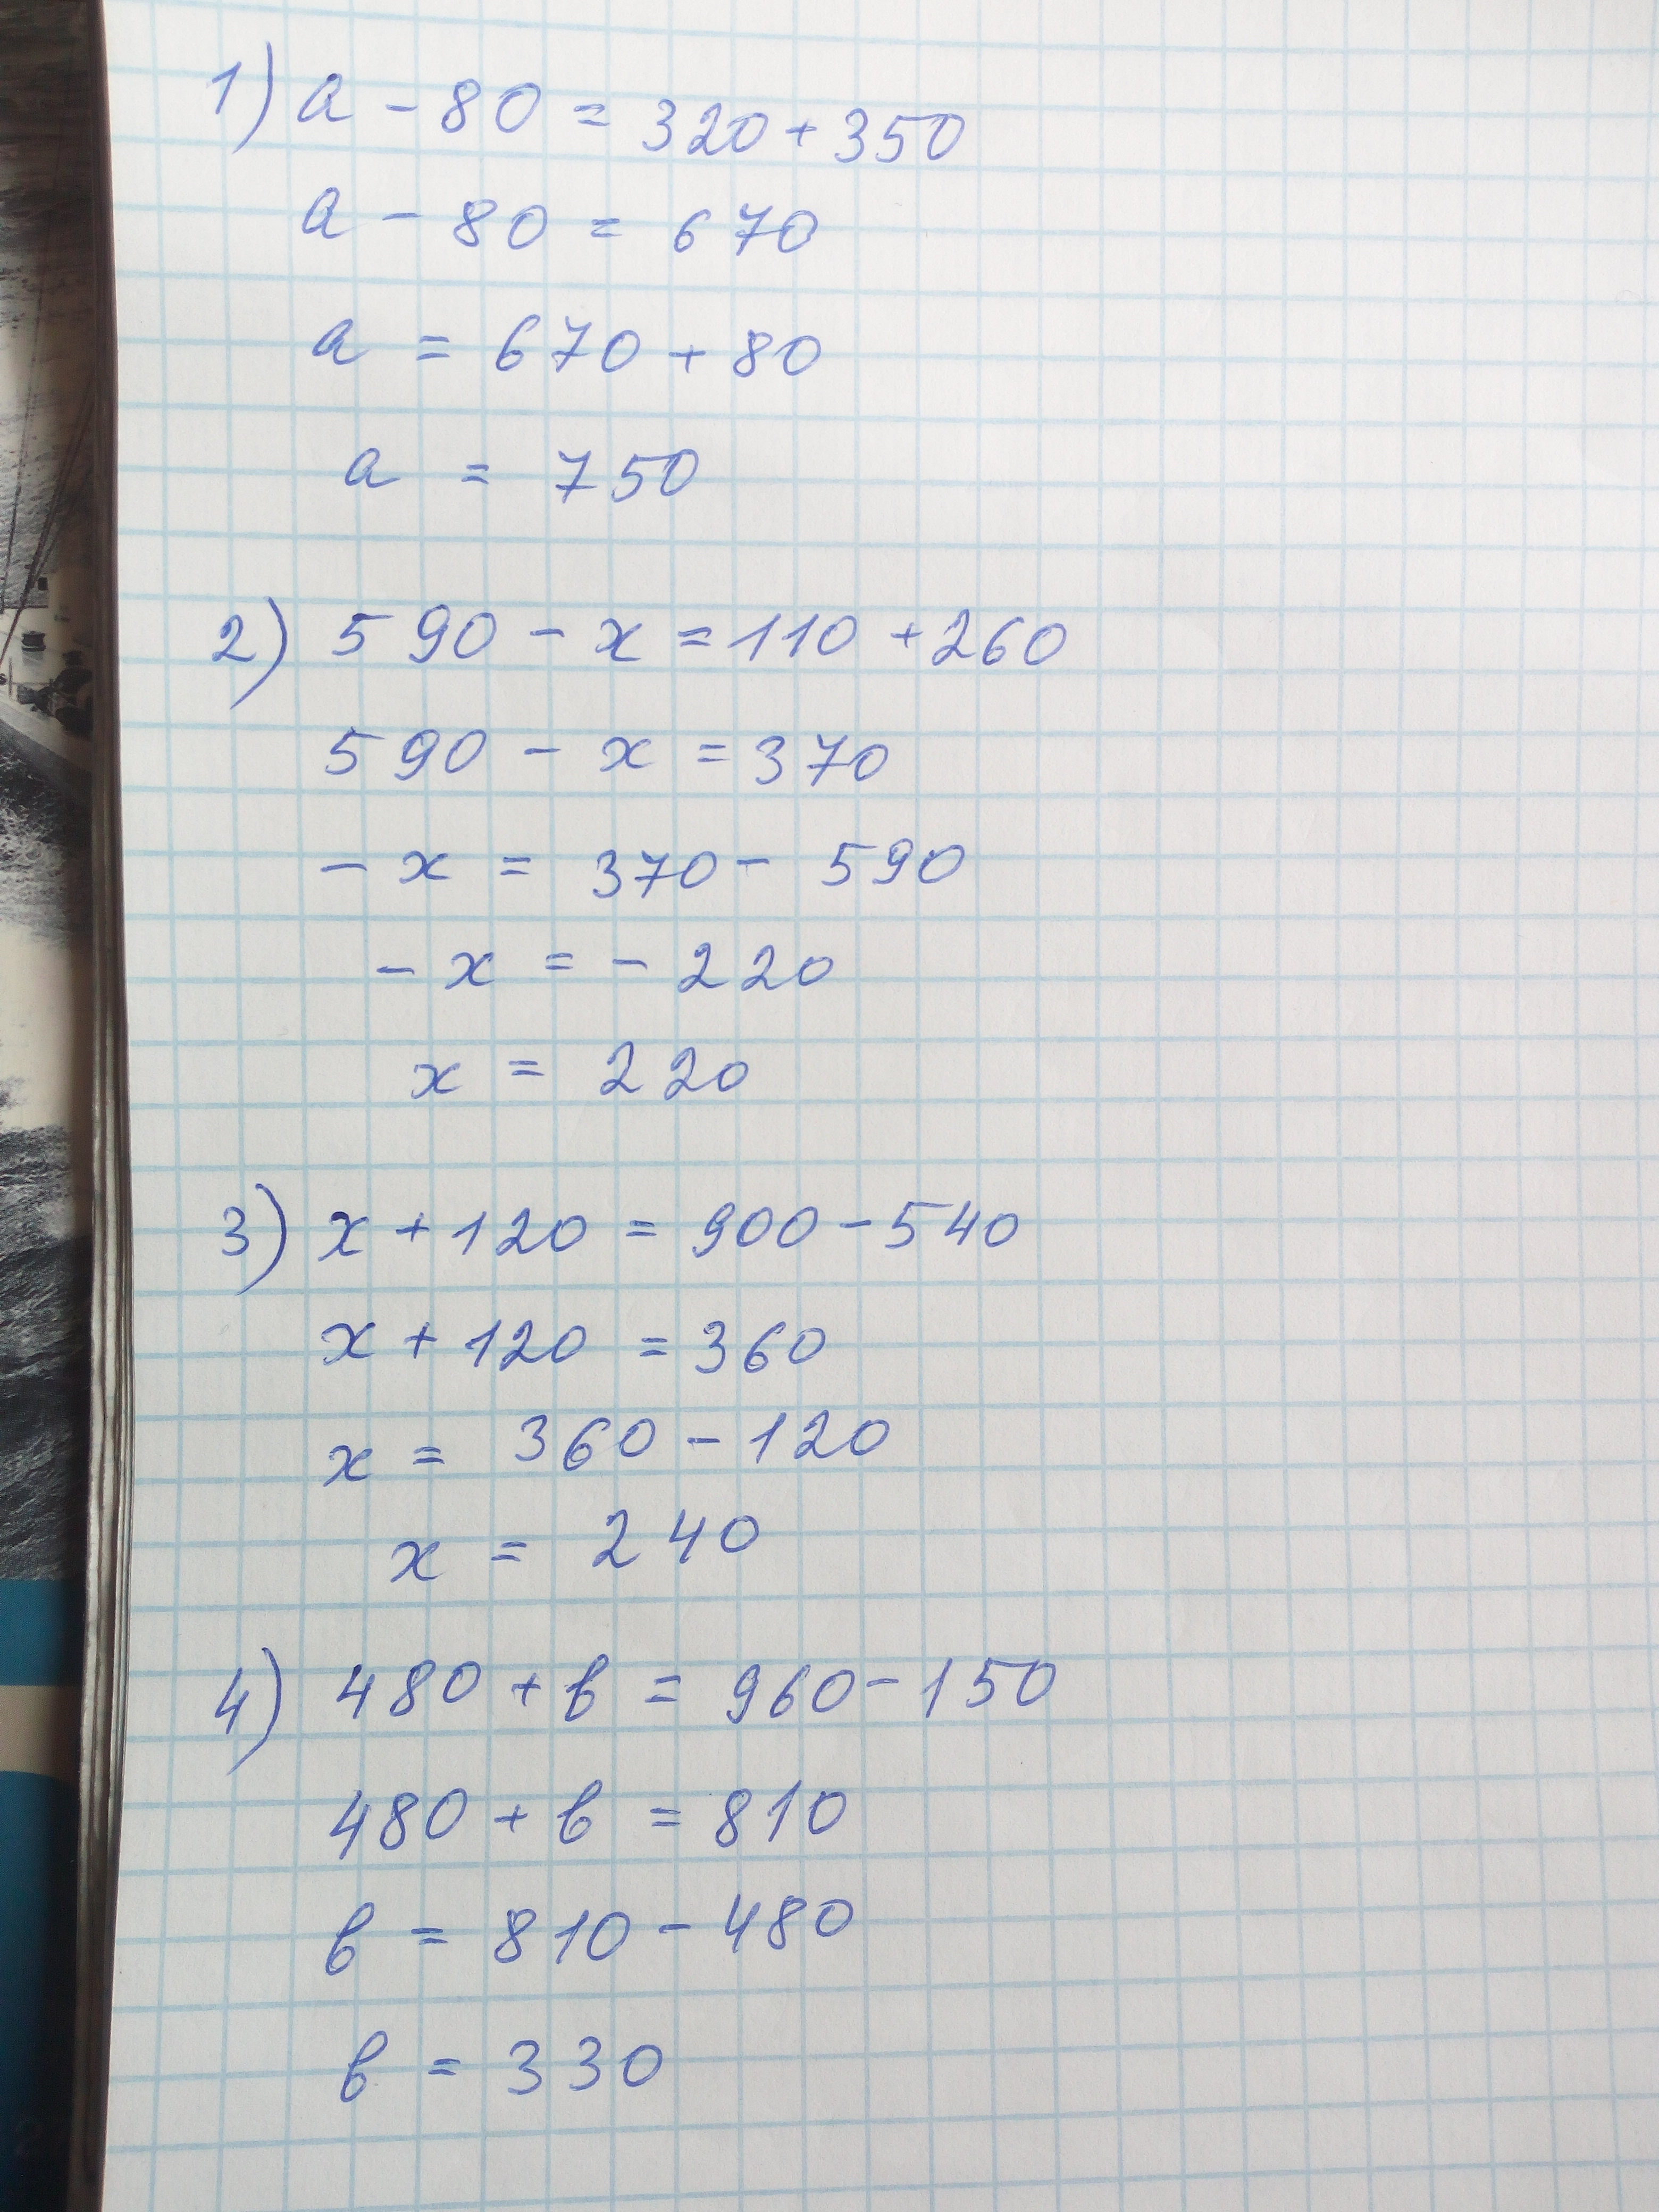 1) a - 80 = 320 + 350
a - 80 = 670
a = 670 + 80
a = 750
2) 590 - x = 110 + 260
590 - x = 370
- x = 370 - 590
- x = - 220
x = 220
3) x + 120 = 900 - 540
x + 120 = 360
x = 360 - 120
x = 240
4) 480 + b = 960 - 150
480 + b = 810
b = 810 - 480
b = 330